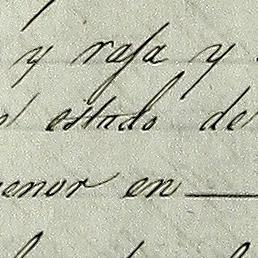 y rasa y
estado de
menor en